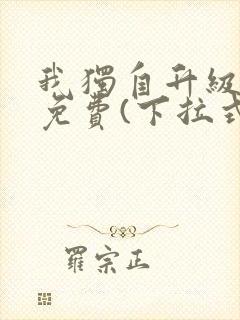 我獨自升級
免費(下拉式
羅宗正